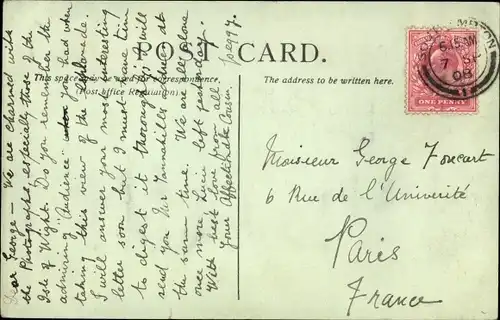 POST CARD.
This space may be used for correspondence.
(Post Office Regulation).
The address to be written here.
Dear George – We are charmed with
the Photographs, especially those of the
Isle of Wight. Do you remember the
admiring "Audience" you had when
taking this view of the
I will answer your most interesting
letter soon but I must have time
to digest it thoroughly; it will
send you Mr Tannahills when at
the same time. We are all alone
once more, Lucie left yesterday.
With best love from all
Your Affectionate Cousin,
Peggy.
6.15 AM
7 SP
08
ONE PENNY
Monsieur George Foucart
6 Rue de l'Univerité
Paris
France